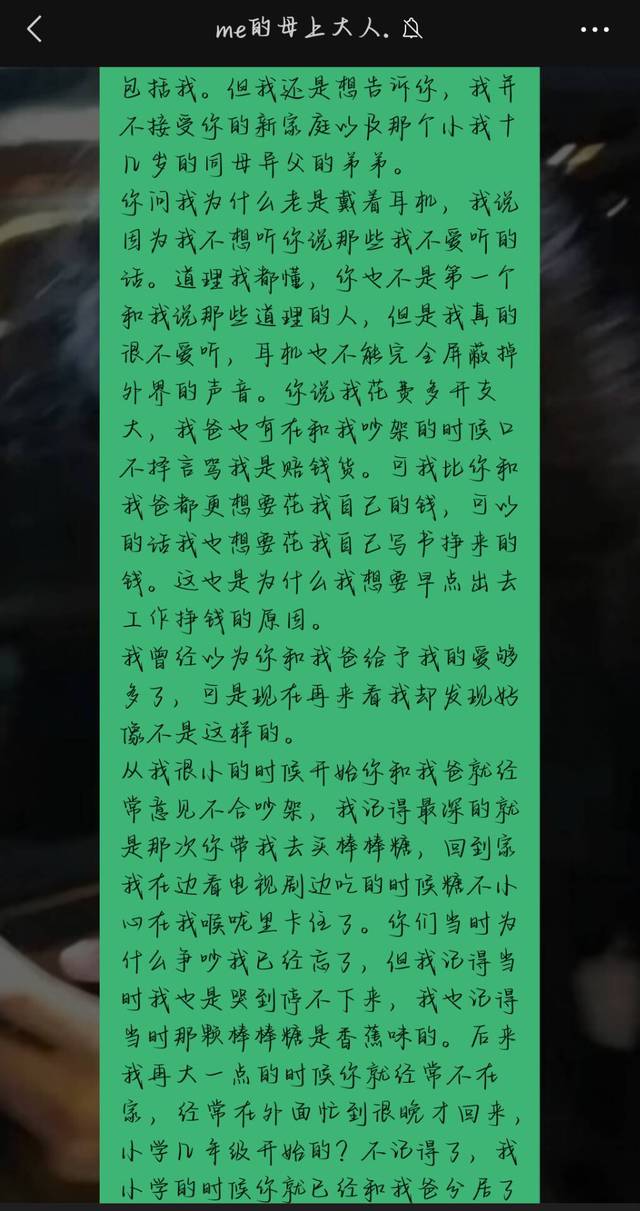 me的母上大人.
包括我。但我还是想告诉你，我并
不接受你的新家庭以及那个小我十
几岁的同母异父的弟弟。
你问我为什么老是戴着耳机，我说
因为我不想听你说那些我不爱听的
话。道理我都懂，你也不是第一个
和我说那些道理的人，但是我真的
很不爱听，耳机也不能完全屏蔽掉
外界的声音。你说我花费多开支
大，我爸也有在和我吵架的时候口
不择言骂我是赔钱货。可我比你和
我爸都更想要花我自己的钱，可以
的话我也想要花我自己写书挣来的
钱。这也是为什么我想要早点出去
工作挣钱的原因。
我曾经以为你和我爸给予我的爱够
多了，可是现在再来看我却发现好
像不是这样的。
从我很小的时候开始你和我爸就经
常意见不合吵架，我记得最深的就
是那次你带我去买棒棒糖，回到家
我在边看电视剧边吃的时候糖不小
心在我喉咙里卡住了。你们当时为
什么争吵我已经忘了，但我记得当
时我也是哭到停不下来，我也记得
当时那颗棒棒糖是香蕉味的。后来
我再大一点的时候你就经常不在
家，经常在外面忙到很晚才回来，
小学几年级开始的？不记得了，我
小学的时候你就已经和我爸分居了